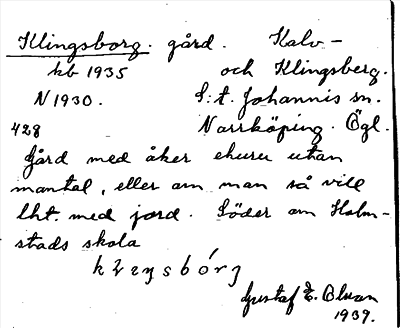 Klingsborg. gård. Kalv-
kb 1935 och Klingsberg.
N 1930. S:t. Johannis sn.
428 Norrköping. Ögl.
Gård med åker ehuru utan
mantal, eller om man så vill
lht. med jord. Söder om Holm-
stads skola
Gustaf E. Olson
1937.